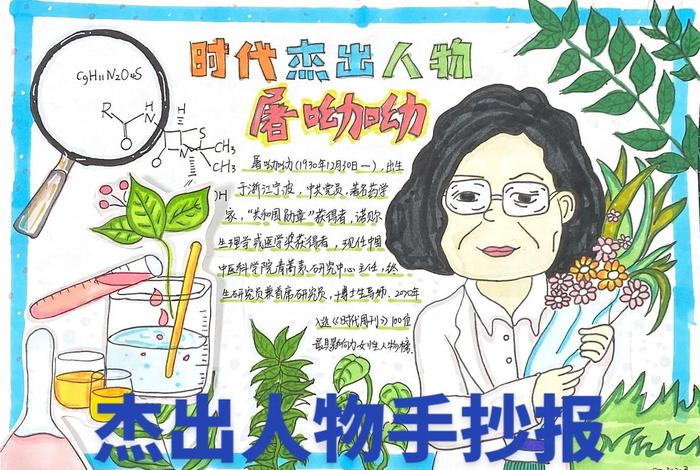 时代杰出人物
屠呦呦
C9H11N2O4S
R
H
N
O
H
S
N
CH3
CH3
OH
屠呦呦(1930年12月30日一),出生
于浙江宁波,中共党员,著名药学
家,“共和国勋章”获得者,诺贝尔
生理学或医学奖获得者,现任中国
中医科学院青蒿素研究中心主任,终
生研究员兼首席研究员,博士生导师、2020年
入选《时代周刊》100位
最具影响力女性人物榜.
杰出人物手抄报